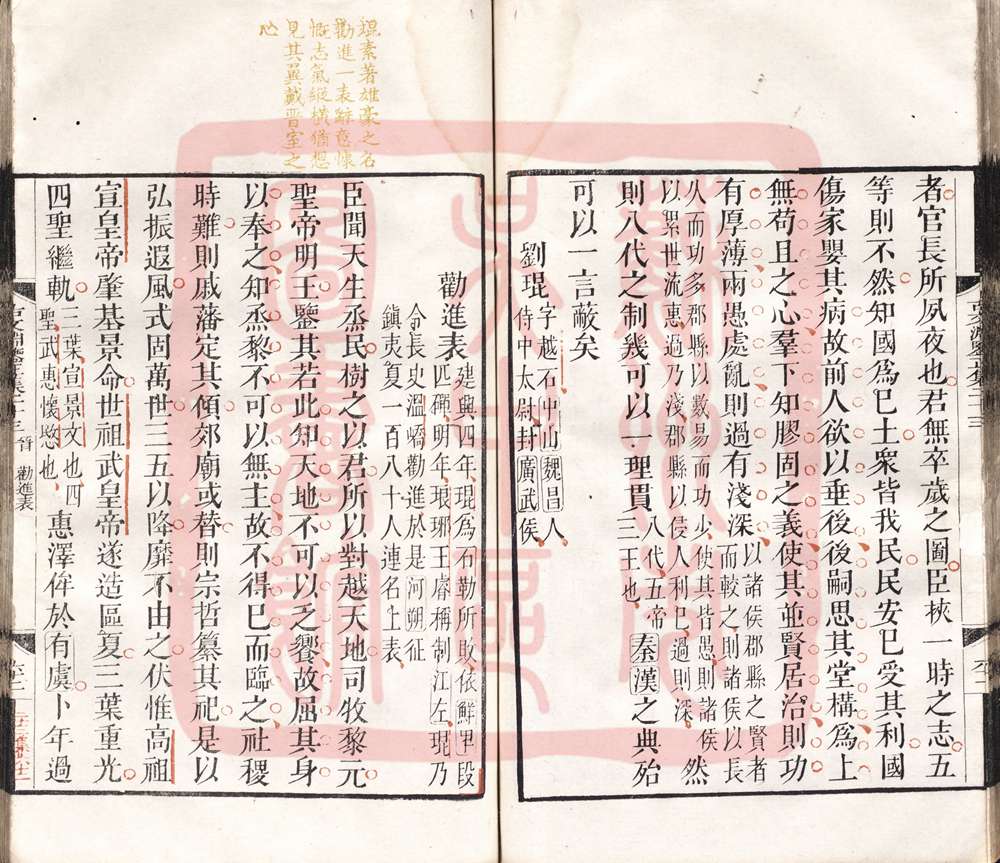 者官長所夙夜也君無卒歲之圖臣挾一時之志五
等則不然知國為己土衆皆我民民安己受其利國
傷家嬰其病故前人欲以垂後後嗣思其堂構為上
無苟且之心羣下知膠固之義使其並賢居治則功
有厚薄兩愚處亂則過有淺深以諸侯郡縣之賢者
而較之則諸侯以長
久而功多郡縣以數易而功少使其皆愚則諸侯
以累世流惠過乃淺郡縣以侵人利己過則深然
則八代之制幾可以一理貫八代五帝
三王也秦漢之典殆
可以一言蔽矣
劉琨字越石中山魏昌人
侍中太尉封廣武侯
琨素著雄豪之名
勸進一表辭意慷
慨志氣縱橫猶想
見其翼戴晉室之
心
勸進表建興四年琨為石勒所敗依鮮卑段
匹磾明年琅琊王睿稱制江左琨乃
令長史溫嶠勸進於是河朔征
鎮夷夏一百八十人連名上表
臣聞天生烝民樹之以君所以對越天地司牧黎元
聖帝明王鑒其若此知天地不可以乏饗故屈其身
以奉之知烝黎不可以無主故不得已而臨之社稷
時難則戚藩定其傾郊廟或替則宗哲纂其祀是以
弘振遐風式固萬世三五以降靡不由之伏惟高祖
宣皇帝肇基景命世祖武皇帝遂造區夏三葉重光
四聖繼軌三葉宣景文也四
聖武惠懷愍也惠澤侔於有虞卜年過
晉 勸進表